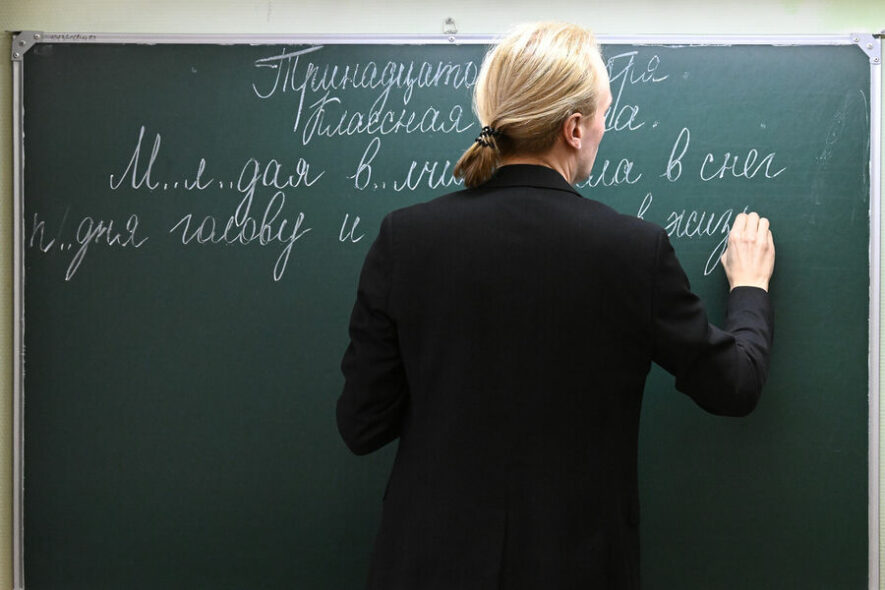 Тринадцато
Классная
М..л..дая в..лчи ла в снег
п..дня голову и в жиз